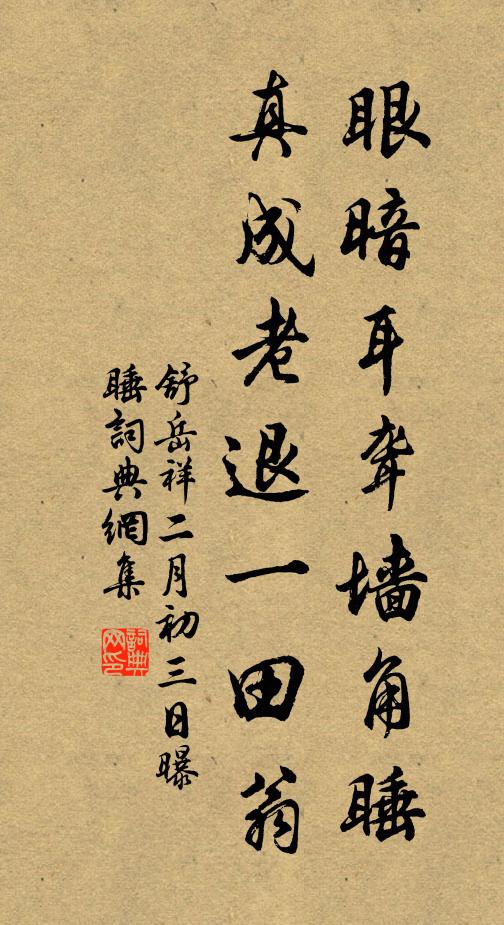 眼暗耳聋墙角睡
真成老退一田翁
舒岳祥二月初三日曝
睡詞典網集
詞典网印